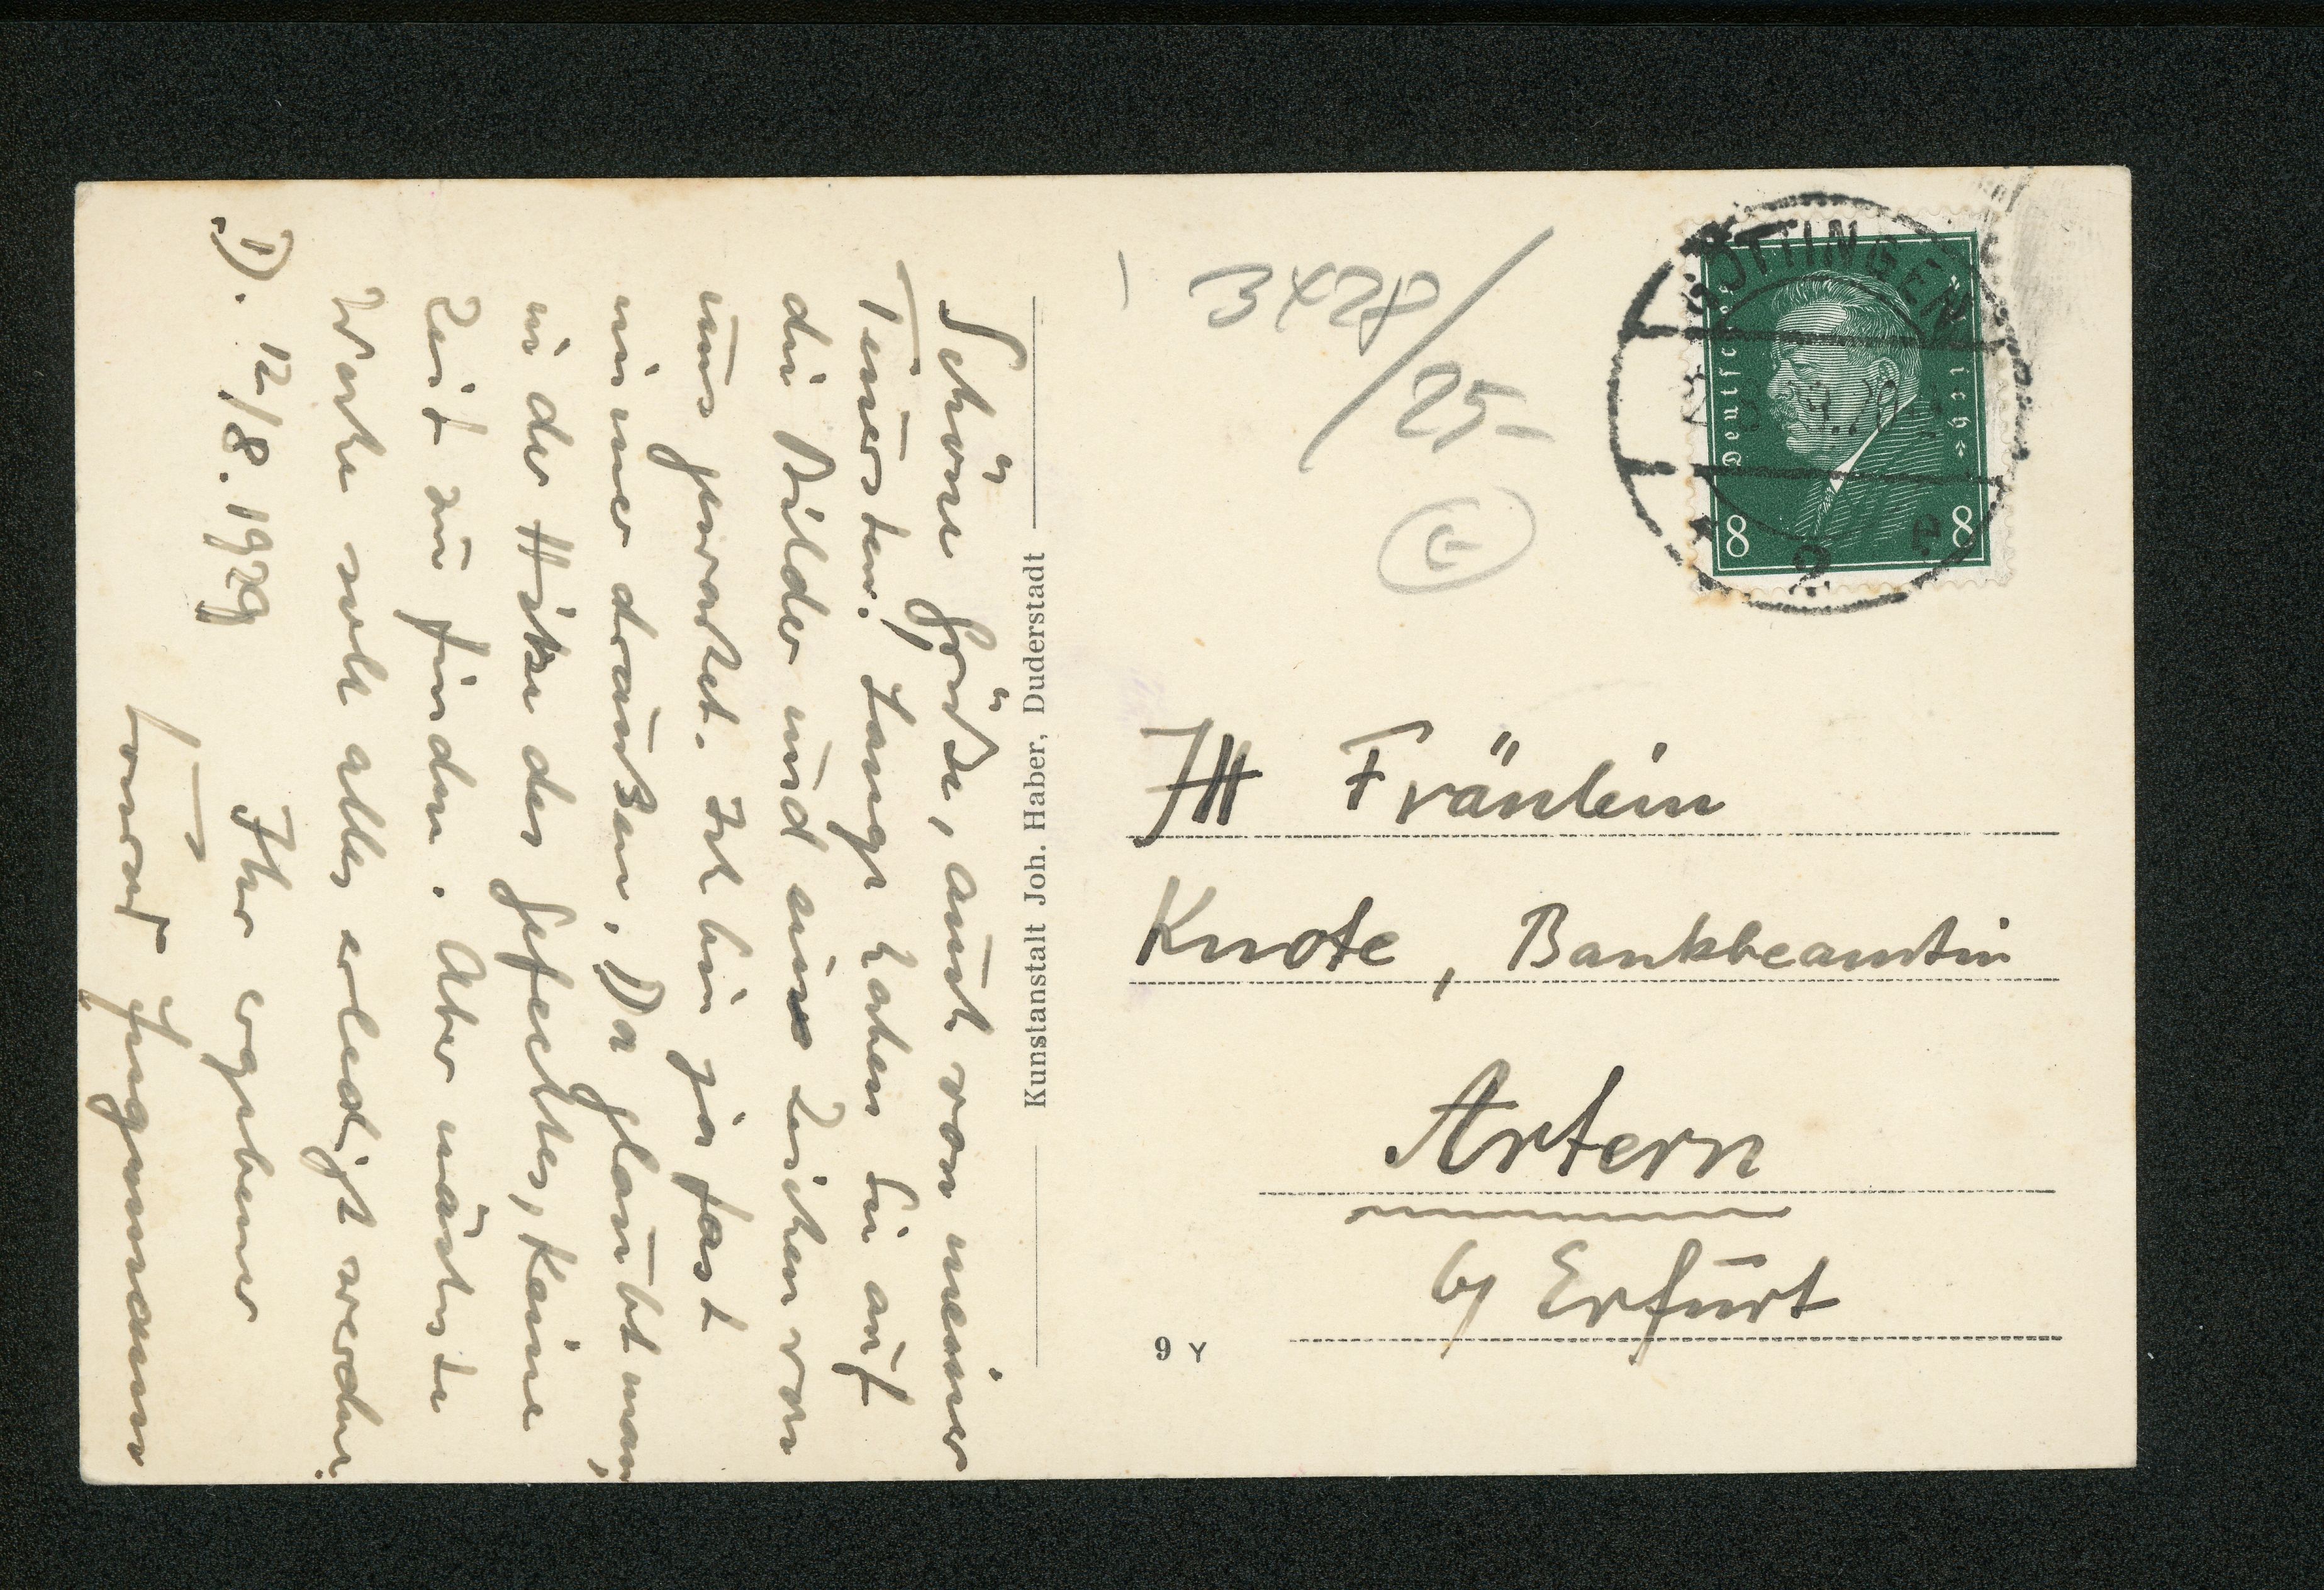 Schöne Grüße, auch von meiner
Teuersten. Lange haben Sie auf
die Bilder und ein Zeichen von
uns gewartet. Ich bin ja fast
immer draußen. Da glaubt man,
in der Hitze des Gefechtes, keine
Zeit zu finden. Aber nächste
Woche soll alles erledigt werden.
D. 12/8. 1929
Ihr ergebener
Jungmann
Kunstanstalt Joh. Haber, Duderstadt
3428/25-
GÖTTINGEN
Deutsches Reich
8 8
Fräulein
Knote, Bankbeamtin
Artern
b/ Erfurt
9 Y